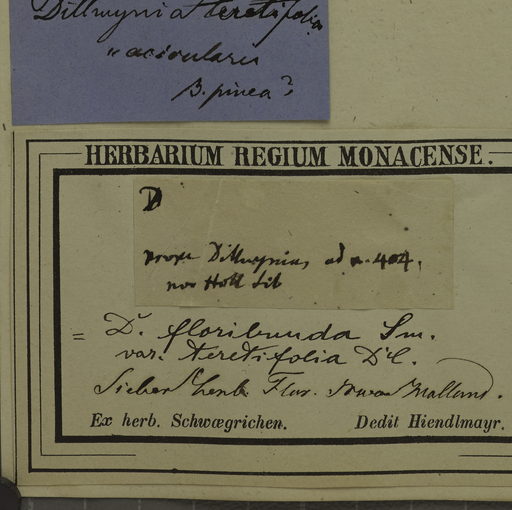 Dillwynia teretifolia
" acicularis
B. pinea?
HERBARIUM REGIUM MONACENSE.
D
Dillwynia, ad n. 404,
nov Holl Sib
= D. floribunda Sm.
var. teretifolia DC.
Sieber herb. Flor. Novae Holland.
Ex herb. Schwægrichen. Dedit Hiendlmayr.